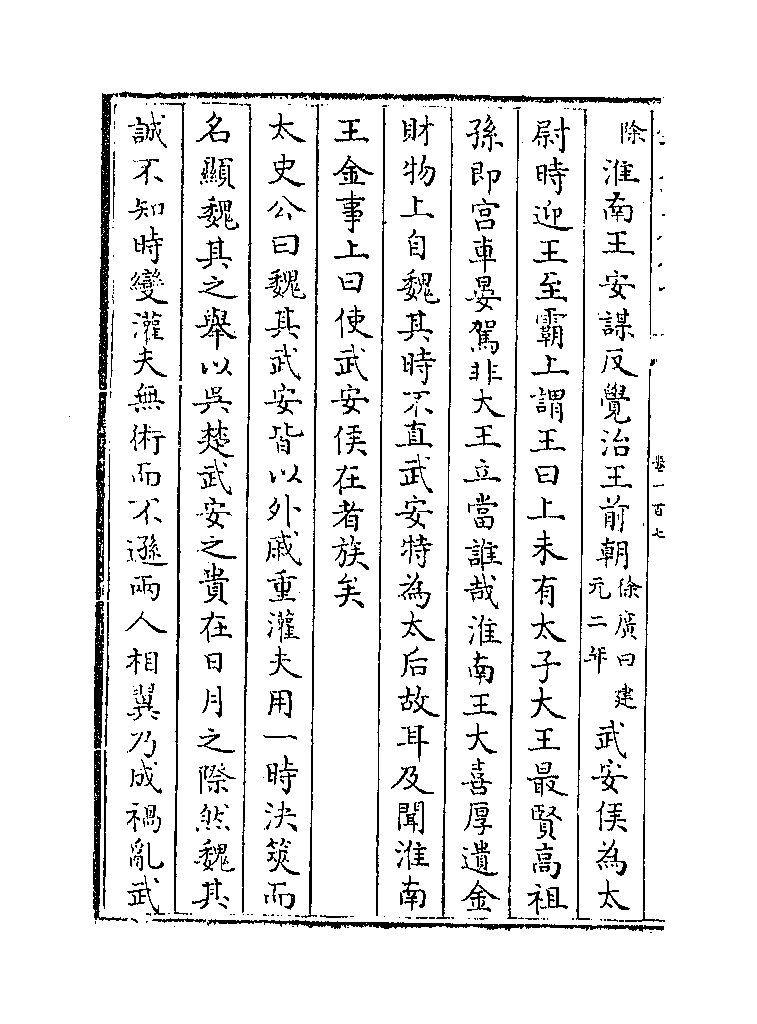 除
淮南王安謀反覺治王前朝徐廣曰建元二年武安侯為太
尉時迎王至霸上謂王曰上未有太子大王最賢高祖
孫即宮車晏駕非大王立當誰哉淮南王大喜厚遺金
財物上自魏其時不直武安特為太后故耳及聞淮南
王金事上曰使武安侯在者族矣
太史公曰魏其武安皆以外戚重灌夫用一時決筴而
名顯魏其之舉以吳楚武安之貴在日月之際然魏其
誠不知時變灌夫無術而不遜兩人相翼乃成禍亂武
卷一百七